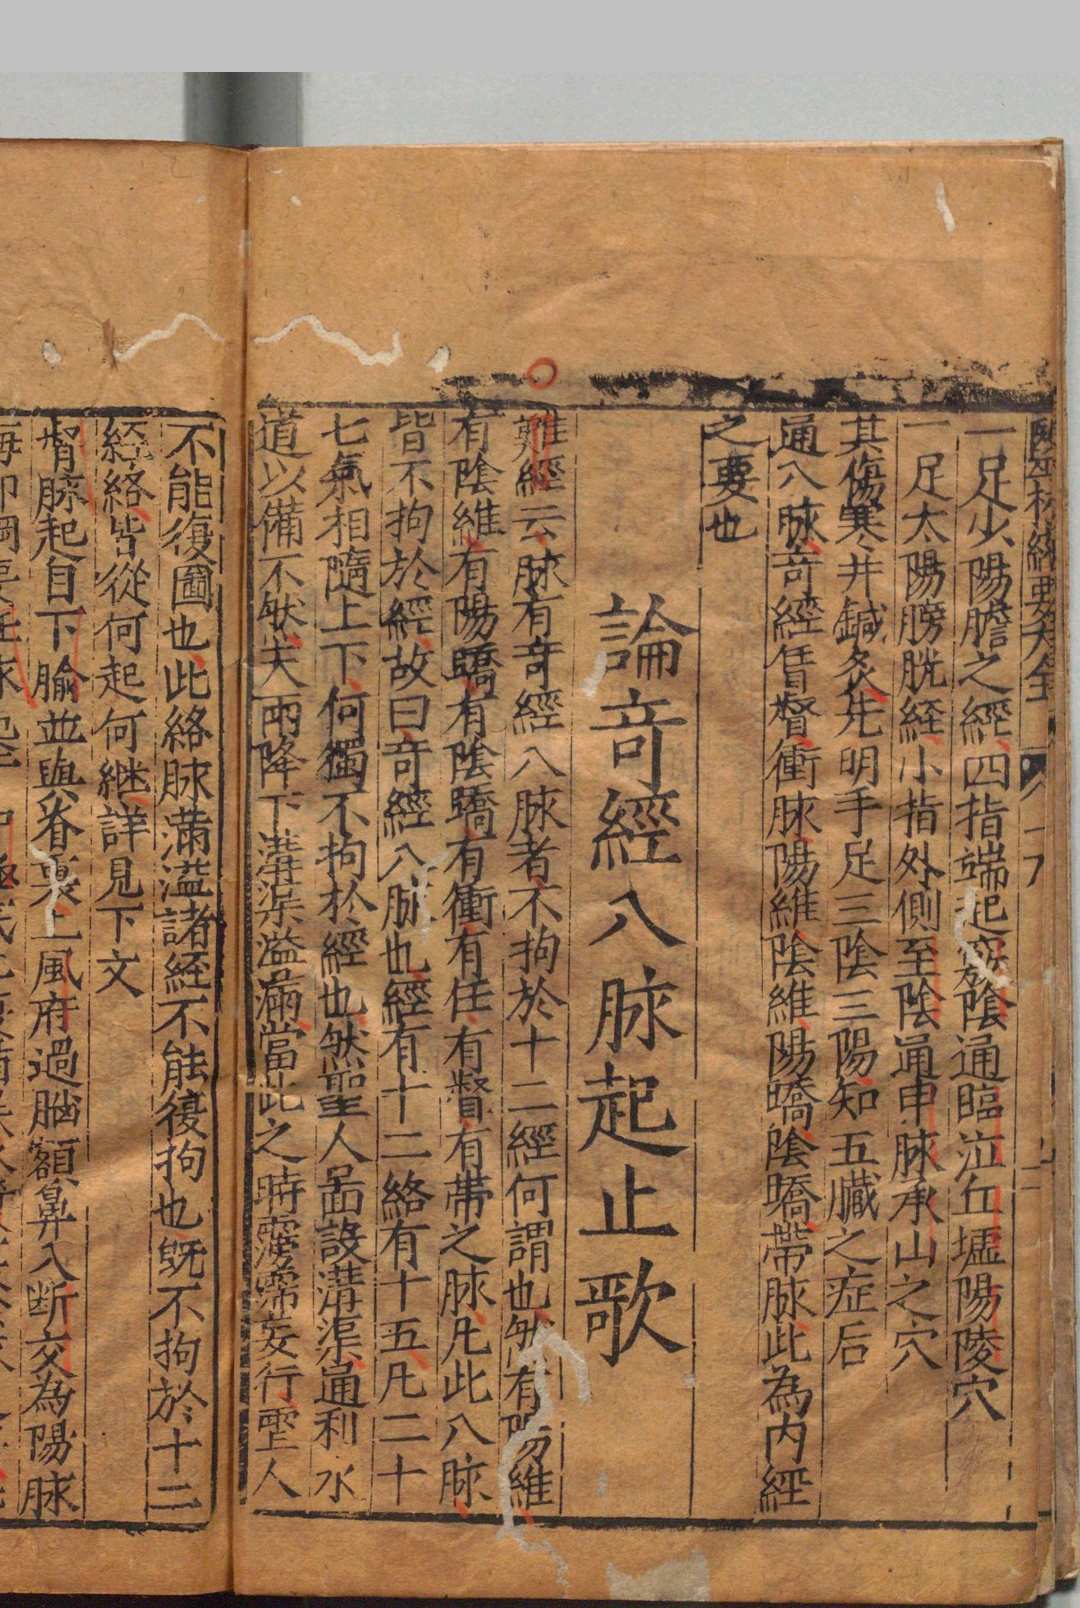 一足少陽膽之經四指端起竅陰通臨泣丘墟陽陵穴
一足太陽膀胱経小指外側至陰通申脉承山之穴
其傷寒井鍼灸先明手足三陰三陽知五臟之症后
通八脉竒經任督衝脉陽維陰維陽蹻陰蹻帶脉此為内經
之要也
論竒經八脉起止歌
難經云脉有竒經八脉者不拘於十二經何謂也然有陽維
有陰維有陽蹻有陰蹻有衝有任有督有帶之脉凡此八脉
皆不拘於經故曰竒經八脉也經有十二絡有十五凡二十
七氣相隨上下何獨不拘於經也然聖人啚設溝渠通利水
道以備不然天雨降下溝渠溢滿當此之時霶霈妄行聖人
不能復圖也此絡脉滿溢諸経不能復拘也既不拘於十二
經絡皆從何起何継詳見下文
督脉起自下腧並與脊裏上風府過腦額鼻入断交為陽脉